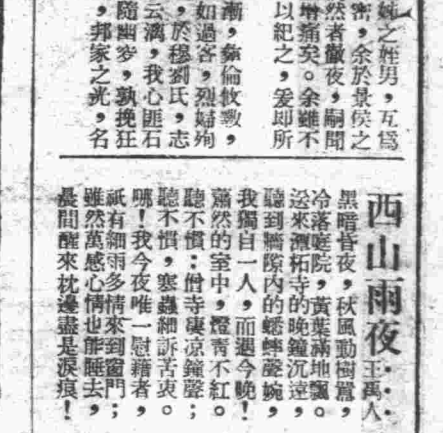 姊之姪男，互爲
密，余於景侯之
然者徹夜，嗣聞
增痛矣。余雖不
以紀之，爰卽所
漸，彝倫攸斁，
如過客，烈婦殉
，於穆劉氏，志
云漓，我心匪石
隨幽穸，孰挽狂
，邦家之光，名
西山雨夜：：王禹人
黑暗昏夜，秋風動樹囂，
冷落庭院，黃葉滿地飄。
送來潭柘寺的晚鐘沉遠，
聽到牆隙內的蟋蟀聲婉，
我獨自一人，而遇今晚！
蕭然的室中，燈靑不紅。
聽不慣：僧寺淒凉鐘聲；
聽不慣，寒蟲細訴苦衷。
！我今夜唯一慰藉者，
祇有細雨多情來到窗門；
雖然萬感心情也能睡去，
晨間醒來枕邊盡是淚痕！